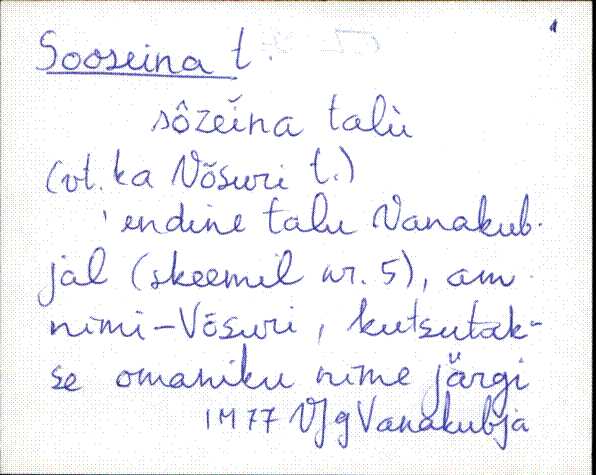 Sooseina t.
sôzeĭna talù
(vt. ka Võsuri t.)
'endine talu Vanakub-
jal (skeemil nr. 5), am.
nimi - Võsuri, kutsutak-
se omaniku nime järgi
IM 77 VJg Vanakubja